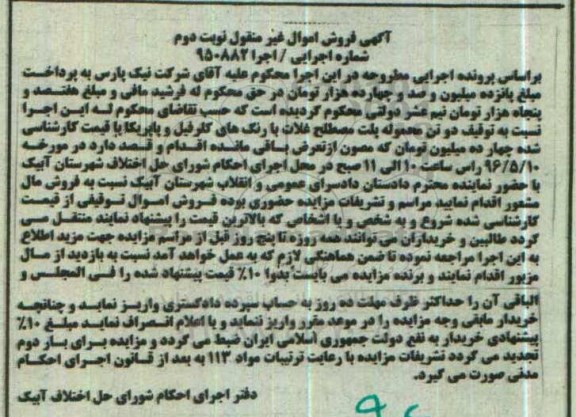 آگهی فروش اموال غیر منقول نوبت دوم
شماره اجرایی / اجرا ۹۵۰۸۸۲
براساس پرونده اجرایی مطروحه در این اجرا محکوم علیه آقای شرکت نیک پارس به پرداخت
مبلغ پانزده میلیون و صد و چهارده هزار تومان در حق محکوم له فرشید مافی و مبلغ هفتصد و
پنجاه هزار تومان نیم عشر دولتی محکوم گردیده است که حسب تقاضای محکوم له این اجرا
نسبت به توقیف دو تن محموله پلت مصطلح غلات با رنگ های کلرفیل و پاپریکا با قیمت کارشناسی
شده چهار ده میلیون تومان که مصون ازتعرض باقی مانده اقدام و قصد دارد در مورخه
۹۶/۵/۱۰ راس ساعت ۱۰ الی ۱۱ صبح در محل اجرای احکام شورای حل اختلاف شهرستان آبیک
با حضور نماینده محترم دادستان دادسرای عمومی و انقلاب شهرستان آبیک نسبت به فروش مال
مشعور اقدام نمایید مراسم و تشریفات مزایده حضوری بوده فروش اموال توقیفی از قیمت
کارشناسی شده شروع و به شخص و یا اشخاص که بالاترین قیمت را پیشنهاد نمایند منتقل می
گردد طالبین و خریداران می توانند همه روزه تا پنج روز قبل از مراسم مزایده جهت مزید اطلاع
به این اجرا مراجعه نموده تا ضمن هماهنگی لازم که به عمل خواهد آمد نسبت به بازدید از مال
مزبور اقدام نمایند و برنده مزایده می بایست بدوا ۱۰٪ قیمت پیشنهاد شده را فی المجلس و
الباقی آن را حداکثر ظرف مهلت ده روز به حساب سپرده دادگستری واریز نماید و چنانچه
خریدار مابقی وجه مزایده را در موعد مقرر واریز ننماید و یا اعلام انصراف نماید مبلغ ۱۰٪
پیشنهادی خریدار به نفع دولت جمهوری اسلامی ایران ضبط می گردد و مزایده برای بار دوم
تجدید می گردد تشریفات مزایده با رعایت ترتیبات مواد ۱۱۳ به بعد از قانون اجرای احکام
مدنی صورت می گیرد.
دفتر اجرای احکام شورای حل اختلاف آبیک